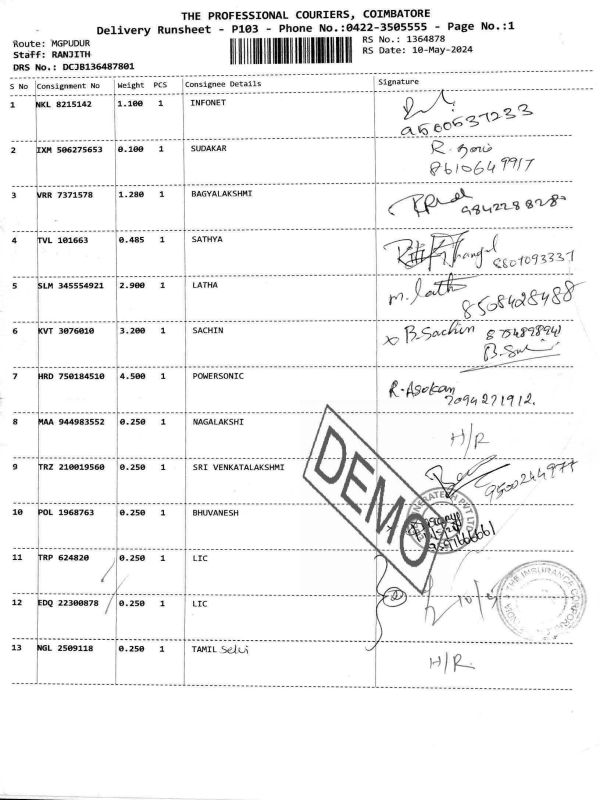 THE PROFESSIONAL COURIERS, COIMBATORE
Delivery Runsheet - P103 - Phone No.:0422-3505555 - Page No.:1
Route: MGPUDUR RS No.: 1364878
Staff: RANJITH RS Date: 10-May-2024
DRS No.: DCJB136487801
S No Consignment No Weight PCS Consignee Details Signature
1 NKL 8215142 1.100 1 INFONET
9500537233
2 IXM 506275653 0.100 1 SUDAKAR R.
8610649917
3 VRR 7371578 1.280 1 BAGYALAKSHMI
9842288280
4 TVL 101663 0.485 1 SATHYA
8807093337
5 SLM 345554921 2.900 1 LATHA m. latha
8508428488
6 KVT 3076010 3.200 1 SACHIN B. Sachin 8754898941
7 HRD 750184510 4.500 1 POWERSONIC R. Asokan
7094271912.
8 MAA 944983552 0.250 1 NAGALAKSHI H/R
9 TRZ 210019560 0.250 1 SRI VENKATALAKSHMI
9500244977
10 POL 1968763 0.250 1 BHUVANESH
11 TRP 624820 0.250 1 LIC
12 EDQ 22300878 0.250 1 LIC 2 10/5
13 NGL 2509118 0.250 1 TAMIL Selvi H/R.
DEMO
PVT LTD
THE INSURANCE CORPOR